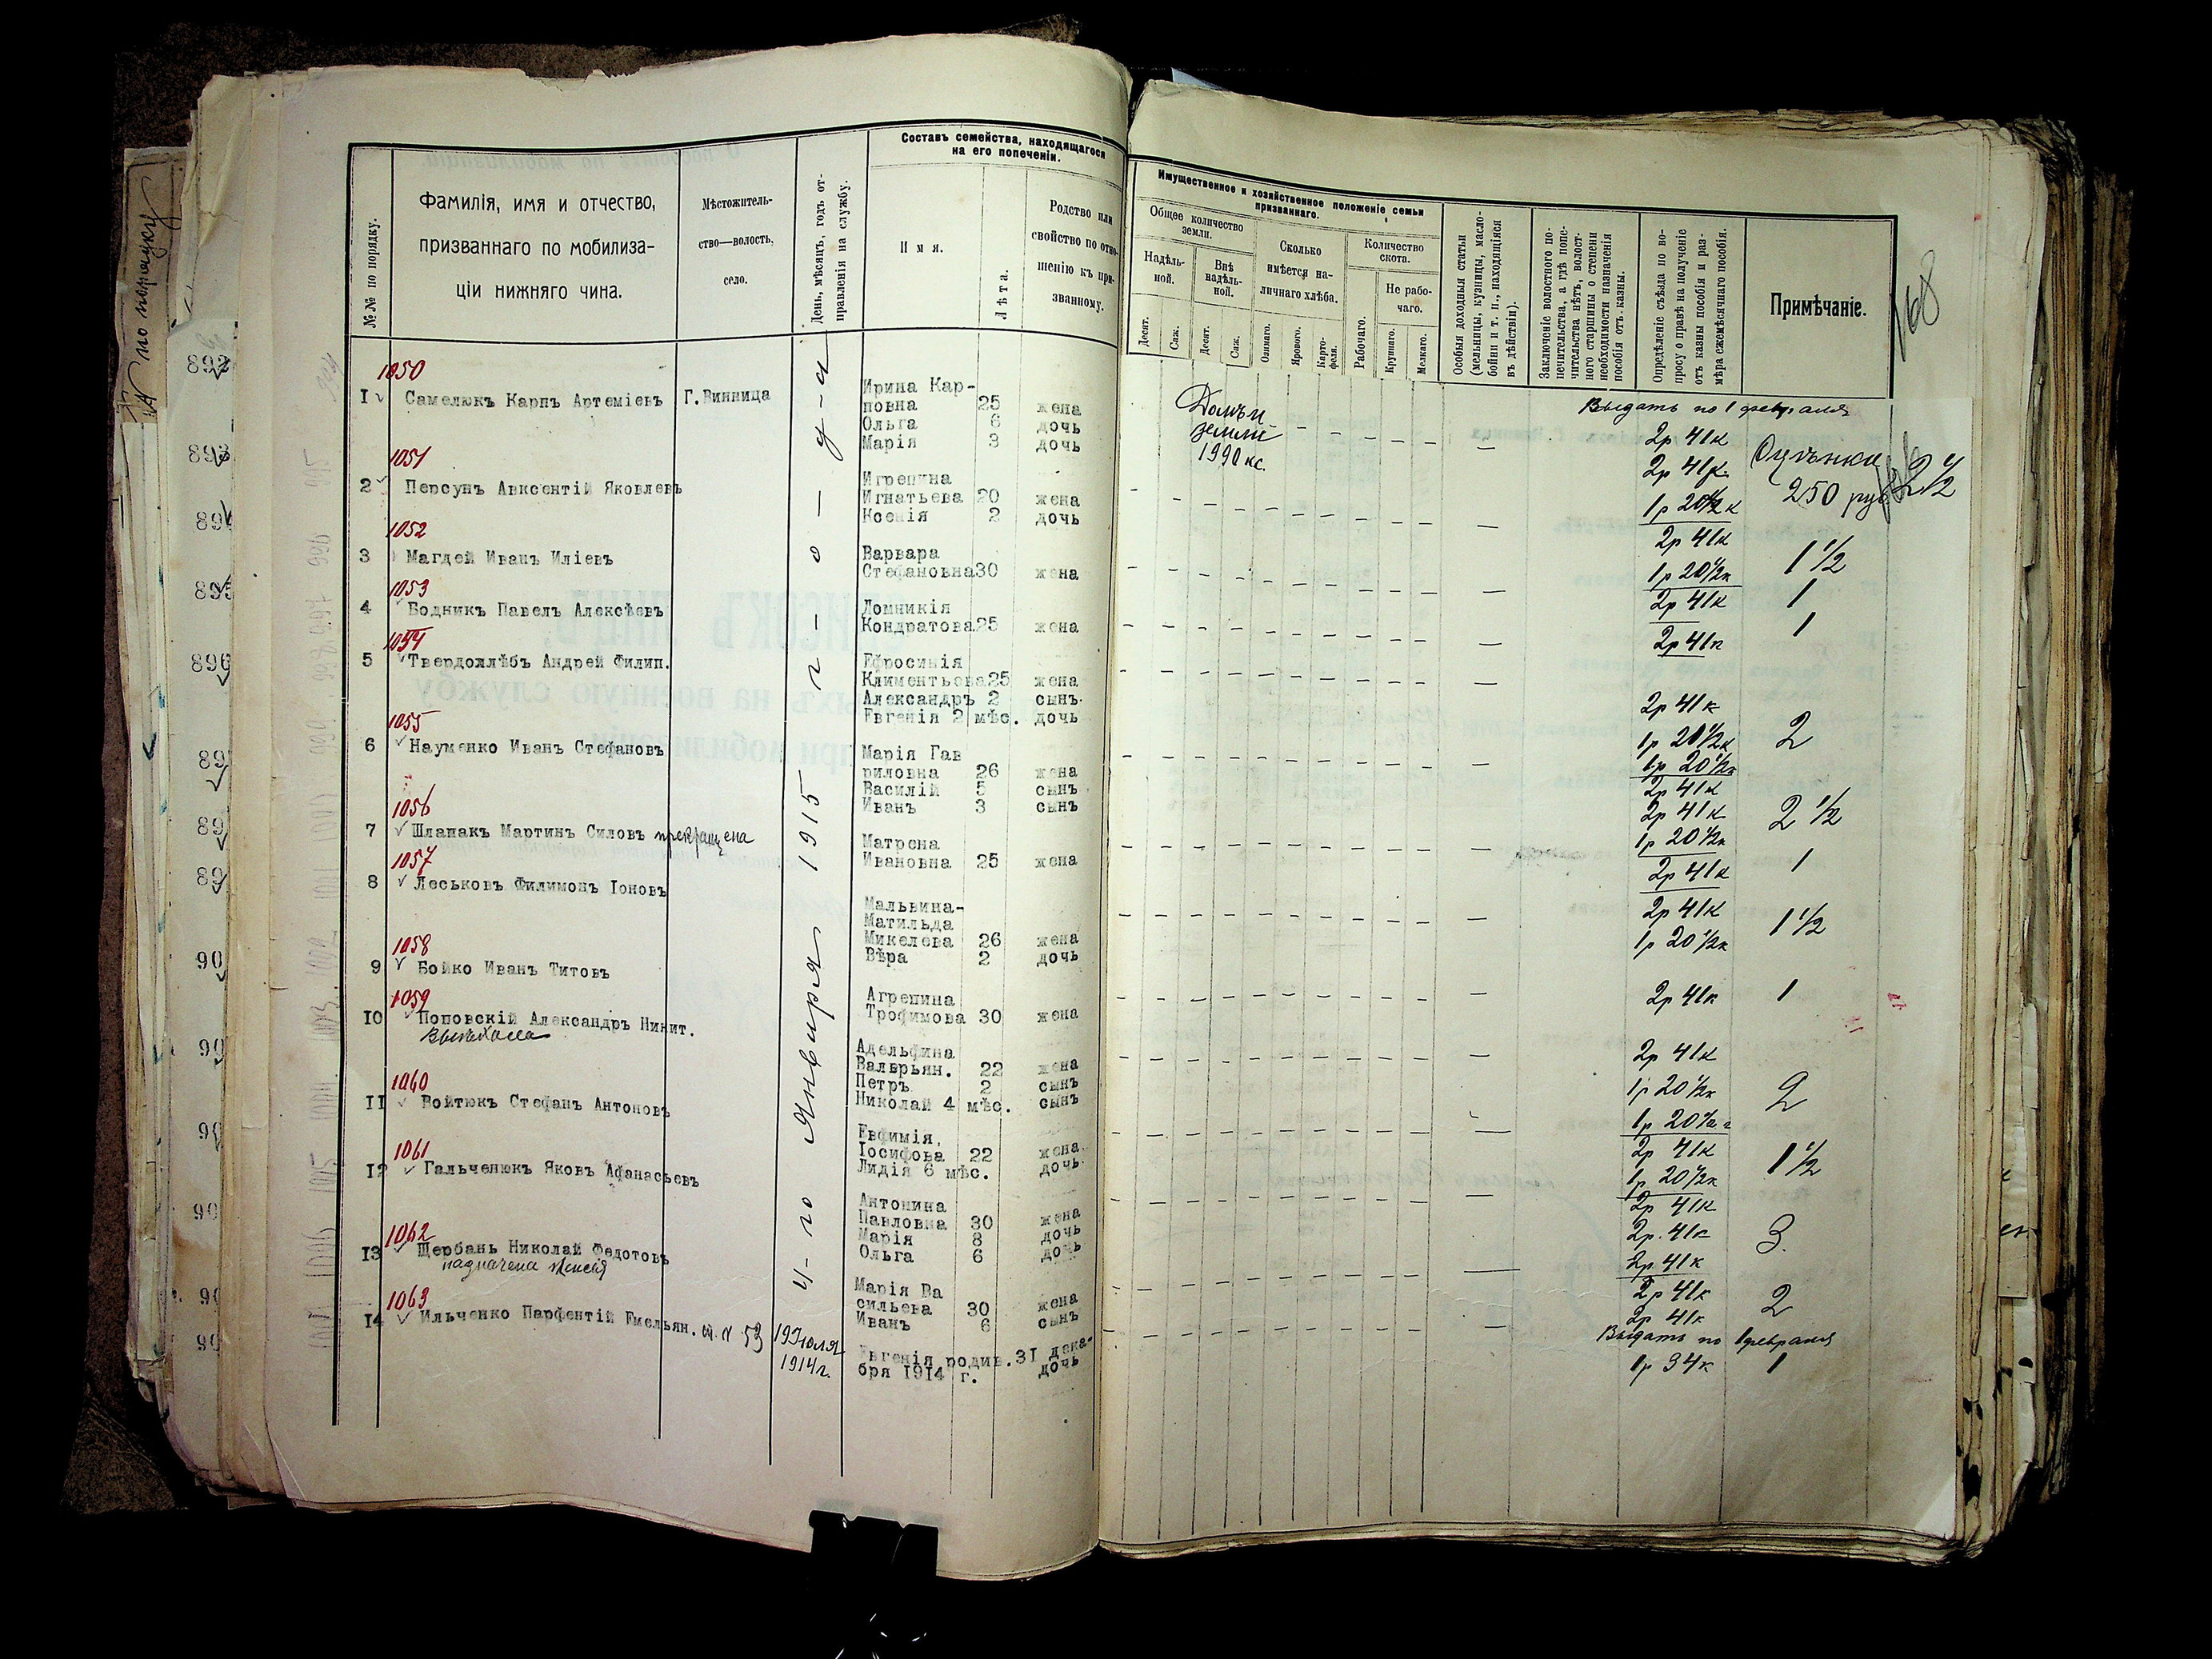 по порядку
Составъ семейства, находящагося
на его попеченіи.
№№ по порядку.
Фамилія, имя и отчество,
призваннаго по мобилиза-
ціи нижняго чина.
Мѣстожитель-
ство—волость,
село.
День, мѣсяцъ, годъ от-
правленія на службу.
Имя.
Лѣта.
Родство или
свойство по отно-
шенію къ при-
званному.
Имущественное и хозяйственное положеніе семьи
призваннаго.
Общее количество
земли.
Надѣль-
ной.
Внѣ
надѣль-
ной.
Десят.
Саж.
Десят.
Саж.
Сколько
имѣется на-
личнаго хлѣба.
Озимаго.
Ярового.
Карто-
феля.
Количество
скота.
Рабочаго.
Не рабо-
чаго.
Крупнаго.
Мелкаго.
Особыя доходныя статьи
(мельницы, кузницы, масло-
бойни и т. п., находящіяся
въ дѣйствіи).
Заключеніе волостного по-
печительства, а гдѣ попе-
чительства нѣтъ, волост-
ного старшины о степени
необходимости назначенія
пособія отъ казны.
Опредѣленіе съѣзда по во-
просу о правѣ на полученіе
отъ казны пособія и раз-
мѣра ежемѣсячнаго пособія.
Примѣчаніе.
168
4-го Января 1915 г-о-д-а
Выдать по 1 февраля
1050
1 Самелюкъ Карпъ Артеміевъ Г. Винница
Ирина Кар-
повна 25 жена
Ольга 6 дочь
Марія 3 дочь
Домъ и
земли
1990 кс.
2р 41к
2р 41к
1р 20 1/2 к
Оцѣнка
250 руб
2 1/2
1051
2 Персунъ Авксентій Яковлевъ
Игрепина
Игнатьева 20 жена
Ксенія 2 дочь
2р 41к
1р 20 1/2к
1 1/2
1052
3 Магдей Иванъ Иліевъ
Варвара
Стефановна 30 жена
2р 41к
1
1053
4 Бодникъ Павелъ Алексѣевъ
Домникія
Кондратова 25 жена
2р 41к
1
1054
5 Твердохлѣбъ Андрей Филип.
Ефросинія
Климентьева 25 жена
Александръ 2 сынъ
Евгенія 2 мѣс. дочь
2р 41к
1р 20 1/2к
1р 20 1/2к
2
1055
6 Науменко Иванъ Стефановъ
Марія Гав
риловна 26 жена
Василій 5 сынъ
Иванъ 3 сынъ
2р 41к
2р 41к
1р 20 1/2к
2 1/2
1056
7 Шлапакъ Мартинъ Силовъ прекращена
Матрона
Ивановна 25 жена
2р 41к
1
1057
8 Леськовъ Филимонъ Іоновъ
Мальвина-
Матильда
Микелева 26 жена
Вѣра 2 дочь
2р 41к
1р 20 1/2к
1 1/2
1058
9 Бойко Иванъ Титовъ
Агрепина
Трофимова 30 жена
2р 41к
1
1059
10 Поповскій Александръ Никит.
выѣхала
Адельфина
Валерьян. 22 жена
Петръ 2 сынъ
Николай 4 мѣс. сынъ
2р 41к
1р 20 1/2к
1р 20 1/2к
2
1060
11 Войтюкъ Стефанъ Антоновъ
Евфимія
Іосифова 22 жена
Лидія 6 мѣс. дочь
2р 41к
1р 20 1/2к
1 1/2
1061
12 Гальченюкъ Яковъ Афанасьевъ
Антонина
Павловна 30 жена
Марія 8 дочь
Ольга 6 дочь
2р 41к
2р. 41к
2р 41к
3.
1062
13 Щербань Николай Федотовъ
назначена пенсія
Марія Ва
сильева 30 жена
Иванъ 6 сынъ
2р 41к
2р 41к
2
1063
14 Ильченко Парфентій Емельян. ст. № 53
19 Іюля
1914 г.
Евгенія родив. 31 дека-
бря 1914 г. дочь
Выдать по 1 февраля
1р 34к
1